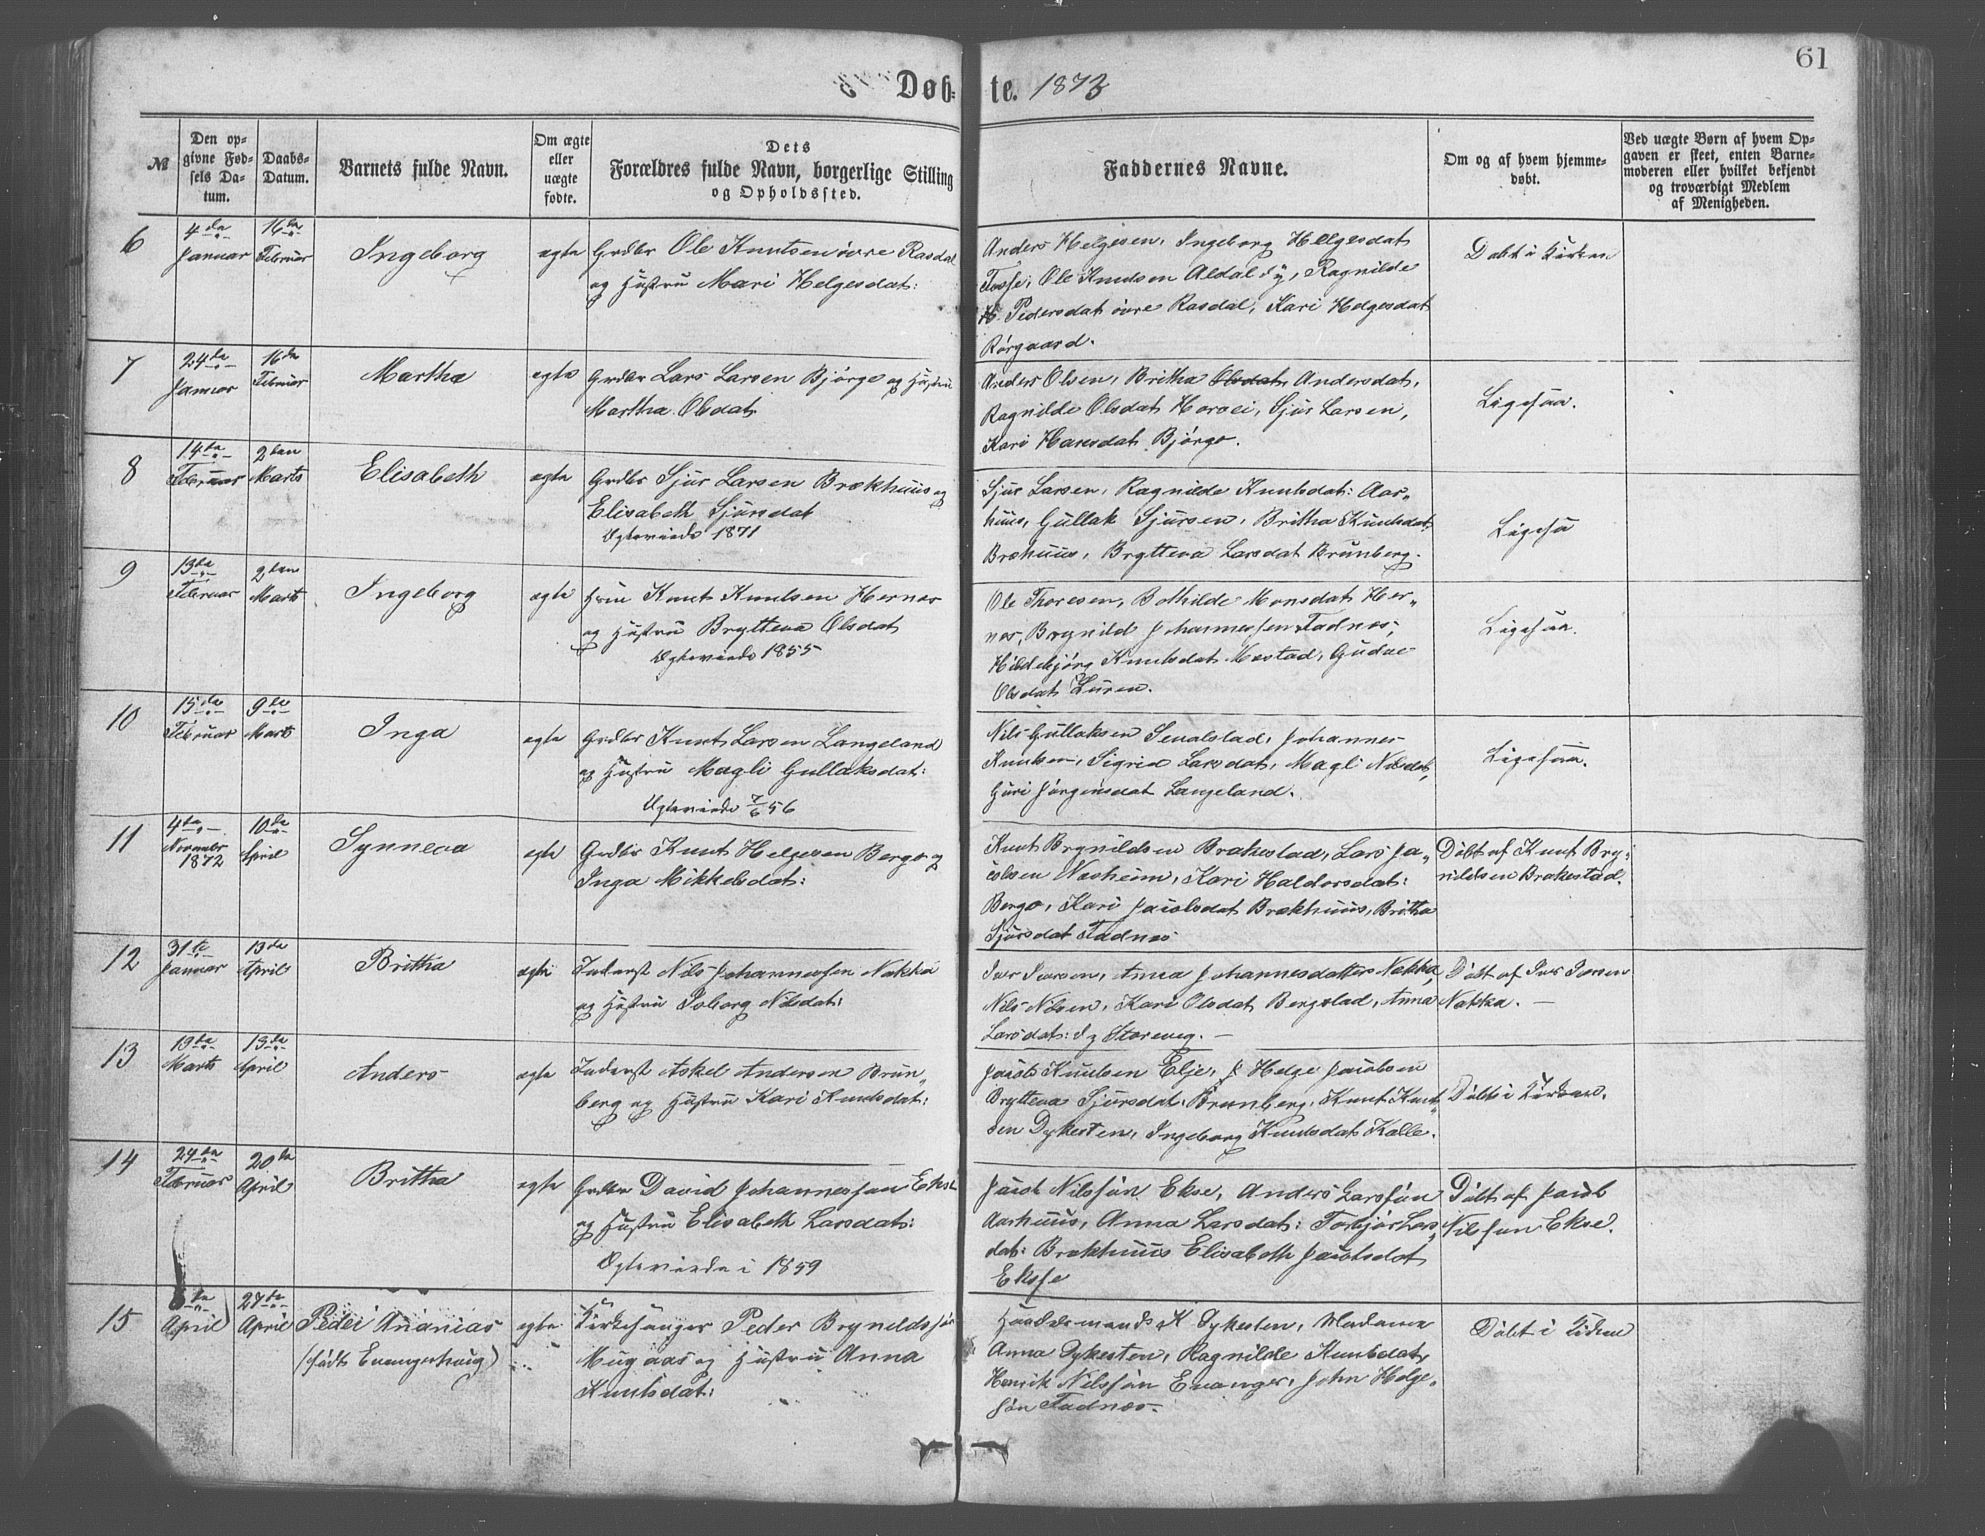 61
Døb= te. 1873
№
Den op-
givne Fød-
sels Da-
tum.
Daabs-
Datum.
Barnets fulde Navn.
Om ægte
eller
uægte
fødte.
Dets
Forældres fulde Navn, borgerlige Stilling
og Opholdssted.
Faddernes Navne.
Om og af hvem hjemme-
døbt.
Ved uægte Børn af hvem Op-
gaven er skeet, enten Barne-
moderen eller hvilket bekjendt
og troværdigt Medlem
af Menigheden.
6
4de
Januar
16de
Februar
Ingeborg
ægte
Grdbr Ole Knutsen övre Rasdal
og Hustru Mari Helgesdat:
Anders Helgesen, Ingeborg Helgesdat
Fosse, Ole Knudsen Aldal, Ragnilde
Pedersdat övre Rasdal, Kari Helgesdat
Rörgaard.
Döbt i Kirken
7
24de
Januar
16de
Februar
Martha
ægte
Grdbr Lars Larsen Björge og Hustru
Martha Olsdat
Anders Olsen, Britha Olsdat, Andersdat,
Ragnilde Olsdat Horvei, Sjur Larsen,
Kari Hansdat Björge.
Ligesaa.
8
14de
Februar
2den
Marts
Elisabeth
ægte
Grdbr Sjur Larsen Brækhuus og
Elisabeth Sjursdat
Ægteviede 1871
Sjur Larsen, Ragnilde Knutsdat: Aas„
huus, Gullak Sjursen, Britha Knutsdat
Bræhuus, Brytteva Larsdat Brunberg.
Ligesa
9
13de
Februar
2den
Marts
Ingeborg
ægte
Hrm Knut Knutsen Hernæs
og Hustru Brytteva Olsdat
Ægteviede 1855
Ole Thoresen, Bothilde Monsdat Her„
næs, Brynild Johannessen Fadnæs,
Hildebjörg Knutsdat Mestad, Gudve
Olsdat Luren.
Ligesaa.
10
15de
Februar
9de
Marts
Inga
ægte
Grdbr Knut Larsen Langeland
og Hustru Magli Gullaksdat:
Ægteviede 7/6 56
Nils Gullaksen Sevalstad, Johannes
Knutsen, Sigrid Larsdat, Magli Nilsdat,
Guri Jörginsdat Langeland.
Ligesaa.
11
4de
Novembr
1872
10de
April
Synneva
ægte
Grdbr Knut Helgesen Berge og
Inga Mikkelsdat:
Knut Brynildsen Brakestad, Lars Ja„
cobsen Næsheim, Kari Haldorsdat:
Berge, Kari Jacobsdat Brækhuus, Britha
Sjursdat Fadnæs
Döbt af Knut Bry„
nildsen Brakestad.
12
31te
Januar
13de
April
Britha
ægte
Inderst Nils Johannessen Nakka
og Hustru Isborg Nilsdat:
Iver Iversen, Anna Johannesdatter Nakka,
Nils Nilsen, Kari Olsdat Bergstad, Anna
Larsdat: Storeveg.
Döbt af Iver Iversen
Nakka.
13
19de
Marts
13de
April
Anders
ægte
Inderst Askel Andersen Brun„
berg og Hustru Kari Knutsdat:
Jacob Knutsen Elje, Helge Jacobsen
Brytteva Sjursdat: Brunberg, Knut Knut„
sen Dykesten, Ingeborg Knutsdat Kalle.
Döbt i Kirken.
14
24de
Februar
20de
April
Britha
ægte
Grdbr David Johannessøn Ekse
og Hustru Elisabeth Larsdat:
Ægteviede i 1859
Jacob Nilssøn Ekse, Anders Larssøn
Aashuus, Anna Larsdat: Torbjör Lars„
dat: Brækhuus Elisabeth Jacobsdat
Eksse
Döbt af Jacob
Nilssøn Ekse.
15
6te
April
27de
April
Peder Ananias
(födt Evangerhaug)
ægte
Kirkesanger Peder Brynildssøn
Mugaas og Hustru Anna
Knutsdat:
Handelsmand K Dykesten, Madame
Anna Dykesten, Ragnilde Knutsdat,
Henrik Nilssøn Evanger, John Helge„
søn Fadnæs.
Döbt i Kirken